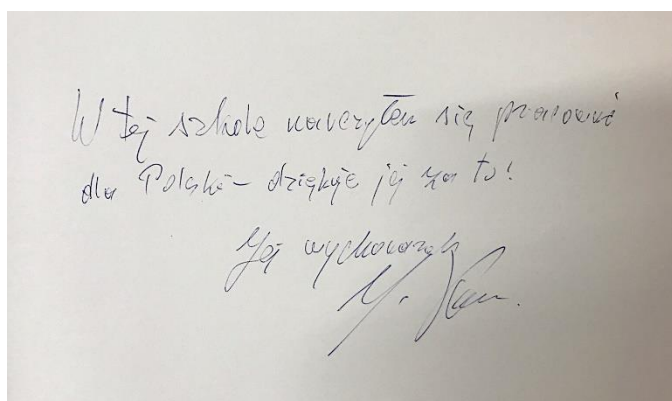 W tej szkole nauczyłem się pracować
dla Polski – dziękuję jej za to!
Jej wychowanek